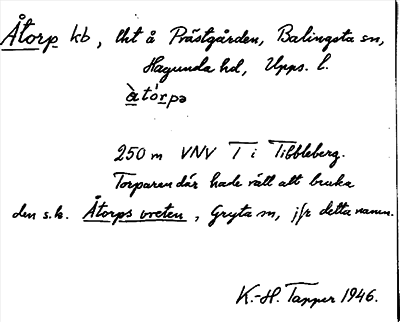 Åtorp kb, tht å Prästgården, Balingsta sn,
Hagunda hd, Upps. l.
àtórpə
250 m VNV T i Tibbleberg.
Torparen där hade rätt att bruka
den s.k. Åtorps vreten, Gryta sn, jfr detta namn.
K.-H. Tapper 1946.